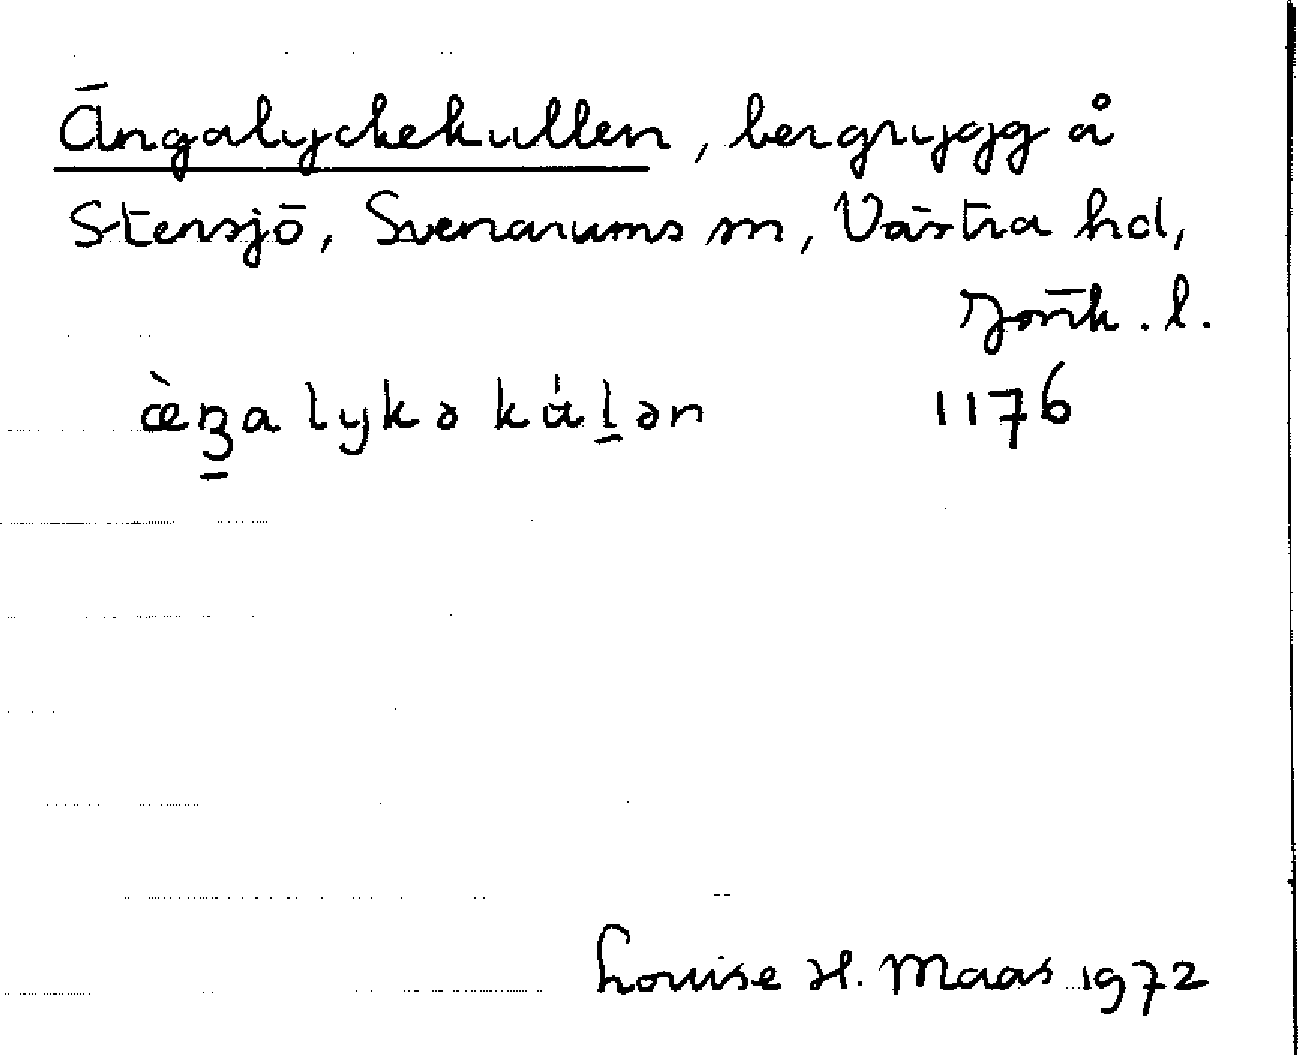 Ängalyckekullen, bergrygg å
Stensjö, Svenarums sn, Västra hd,
Jönk. l.
æ̀ŋa lykə ku̇l̠ən 1176
Louise H. Maas 1972